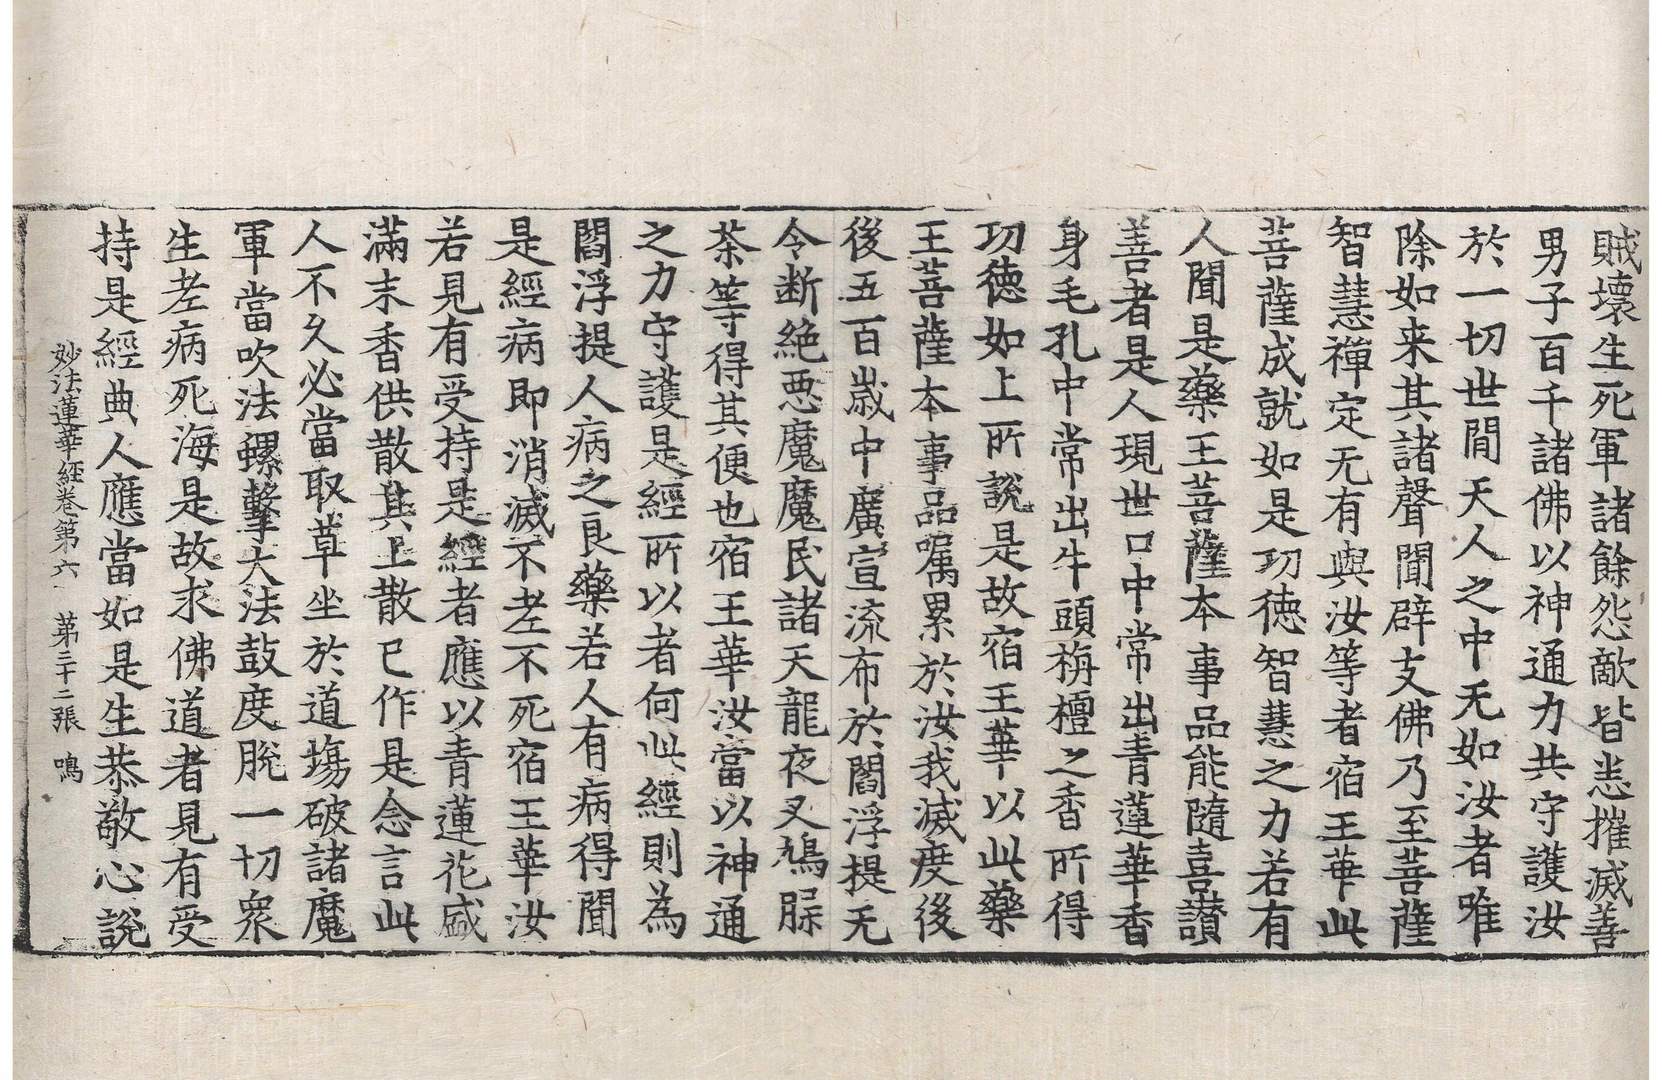 賊壞生死軍諸餘怨敵皆悉摧滅善
男子百千諸佛以神通力共守護汝
於一切世閒天人之中无如汝者唯
除如来其諸聲聞辟支佛乃至菩薩
智慧禪定无有與汝等者宿王華此
菩薩成就如是功德智慧之力若有
人聞是藥王菩薩本事品能隨喜讃
善者是人現世口中常出青蓮華香
身毛孔中常出牛頭栴檀之香所得
功德如上所說是故宿王華以此藥
王菩薩本事品嘱累於汝我滅度後
後五百歲中廣宣流布於閻浮提无
令断絶惡魔魔民諸天龍夜叉鳩脲
茶等得其便也宿王華汝當以神通
之力守護是經所以者何此經則為
閻浮提人病之良藥若人有病得聞
是經病即消滅不老不死宿王華汝
若見有受持是經者應以青蓮花盛
滿末香供散其上散已作是念言此
人不久必當取草坐於道場破諸魔
軍當吹法螺擊大法鼓度脫一切衆
生老病死海是故求佛道者見有受
持是經典人應當如是生恭敬心說
妙法蓮華經卷第六 第三十二張 鳴